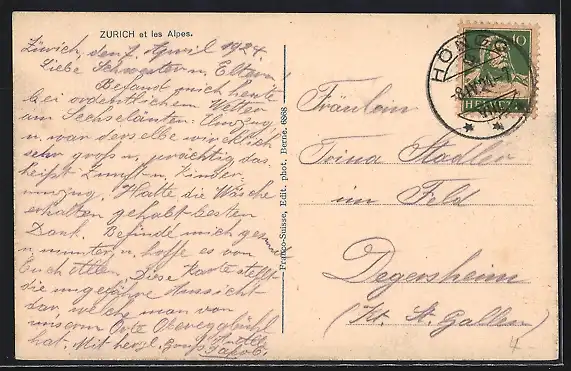 ZURICH et les Alpes.
Zürich, den 7. April 1924.
Liebe Schwester u. Eltern!
Befand mich heute
bei ordentlichem Wetter
am Sechseläuten-Umzug
u. war derselbe wirklich
sehr gross u. prächtig das
heisst Zunft- u. Kinder-
umzug. Hatte die Wäsche
erhalten gehabt besten
Dank. Befinde mich gesund
u. munter u. hoffe es von
Euch Allen. Diese Karte stellt
die ungefähre Aussicht
dar, welche man von
unserm Orte aus
hat. Mit herzl. Gruss
Jakob.
Franco-Suisse, Edit. phot. Berne. 6868
HÖNGG
-8.IV.24.-7
10
HELVETIA
Fräulein
Trina Stadler
im Feld
Degersheim
(Kt. St. Gallen)